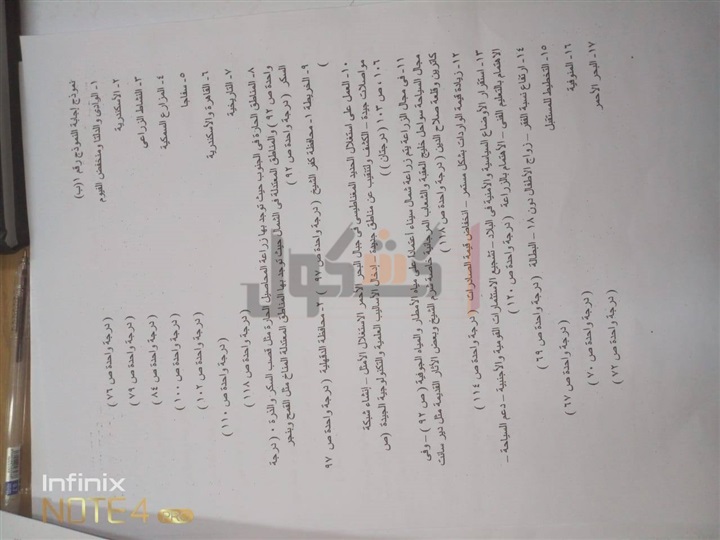 نموذج إجابة النموذج رقم ١(ب)
١- الوادى والدلتا ومنخفض الفيوم ( درجة واحدة ص ٧٦ )
٢- الأسكندرية ( درجة واحدة ص ٧٩ )
٣- النشاط الزراعى ( درجة واحدة ص ٨٤ )
٤- المزارع السمكية ( درجة واحدة ص ١٠٠ )
٥- سفاجا ( درجة واحدة ص ١٠٢ )
٦- القاهرة والأسكندرية ( درجة واحدة ص ١١٠ )
٧- التاريخية ( درجة واحدة ص ١١٨ )
٨- المناطق الحارة فى الجنوب حيث توجد بها زراعة المحاصيل الحارة مثل قصب السكر والذرة . ( درجة
واحدة ص ٩٢ ) والمناطق المعتدلة فى الشمال حيث توجد بها المناطق المعتدلة المناخ مثل القمح وبنجر
السكر ( درجة واحدة ص ٩٢ )
٩- الخريطة ١- محافظة كفر الشيخ ( درجة واحدة ص ٩٧ ) ٢- محافظة الدقهلية ( درجة واحدة ص ٩٧
)
١٠- العمل على استغلال الحديد المغناطيسى فى جبال البحر الأحمر الاستغلال الأمثل – إنشاء شبكة
مواصلات جيدة – الكشف والتنقيب عن مناطق جديدة – إدخال الأساليب العلمية والتكنولوجية الجيدة (ص
١٠٦ ، ص ١٠٣ ( درجتان ))
١١- فى مجال الزراعة يتم زراعة شمال سيناء اعتمادا على مياه الأمطار والمياه الجوفية ( ص ٩٢ ) – وفى
مجال السياحة سواحل خليج العقبة والشعاب المرجانية خاصة شرم الشيخ وبعض الأثار القديمة مثل دير سانت
كاترين وقلعة صلاح الدين ( درجة واحدة ص ١١٨ )
١٢- زيادة قيمة الواردات بشكل مستمر – انخفاض قيمة الصادرات ( درجة واحدة ص ١١٤ )
١٣- استقرار الأوضاع السياسية والأمنية فى البلاد – تشجيع الاستثمارات القومية والأجنبية – دعم السياحة –
الاهتمام بالتعليم الفنى – الاهتمام بالزراعة ( درجة واحدة ص ١٢٠ )
١٤- ارتفاع نسبة الفقر – زواج الأطفال دون ١٨ – البطالة ( درجة واحدة ص ٦٩ )
١٥- التخطيط للمستقبل ( درجة واحدة ص ٦٧ )
١٦- المنوفية ( درجة واحدة ص ٧٠ )
١٧- البحر الأحمر ( درجة واحدة ص ٧٢ )
Infinix
NOTE 4 PRO